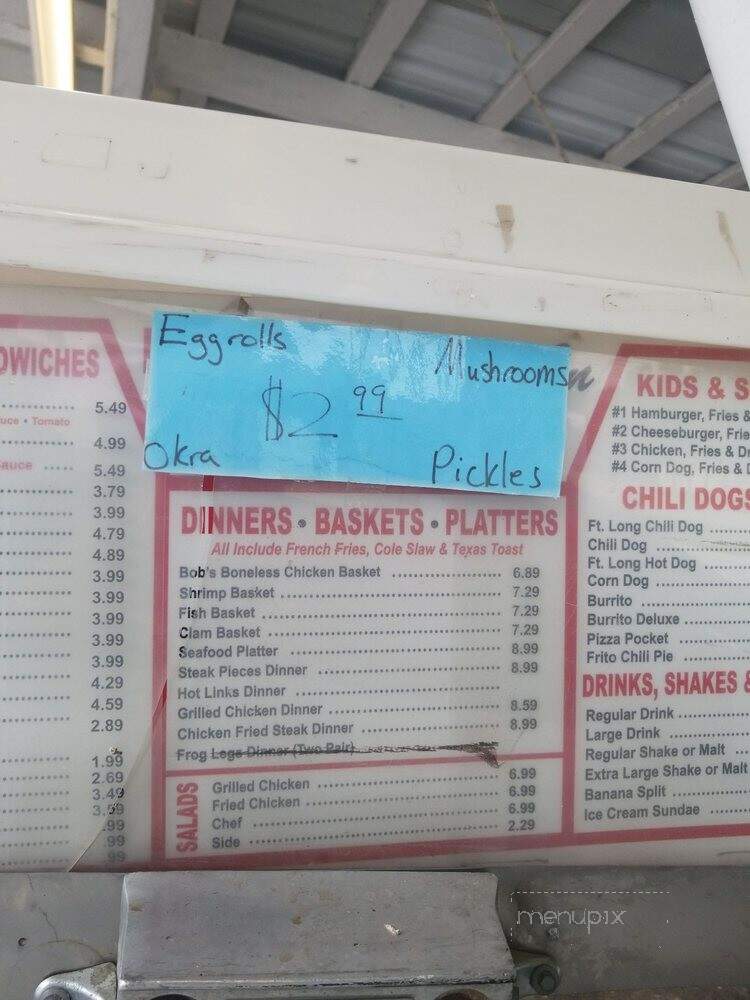 Eggrolls
Mushrooms
$2.99
Okra
Pickles
DWICHES
5.49
uce • Tomato
4.99
auce
5.49
3.79
3.99
4.79
4.89
3.99
3.99
3.99
3.99
3.99
4.29
4.59
2.89
1.99
2.69
3.49
.99
.99
.99
DINNERS • BASKETS • PLATTERS
All Include French Fries, Cole Slaw & Texas Toast
Bob's Boneless Chicken Basket 6.89
Shrimp Basket 7.29
Fish Basket 7.29
Clam Basket 7.29
Seafood Platter 8.99
Steak Pieces Dinner 8.99
Hot Links Dinner
Grilled Chicken Dinner 8.59
Chicken Fried Steak Dinner 8.99
Frog Legs Dinner (Two Pair)
SALADS
Grilled Chicken 6.99
Fried Chicken 6.99
Chef 6.99
Side 2.29
KIDS & S
#1 Hamburger, Fries &
#2 Cheeseburger, Frie
#3 Chicken, Fries & Dr
#4 Corn Dog, Fries & D
CHILI DOGS
Ft. Long Chili Dog
Chili Dog
Ft. Long Hot Dog
Corn Dog
Burrito
Burrito Deluxe
Pizza Pocket
Frito Chili Pie
DRINKS, SHAKES &
Regular Drink
Large Drink
Regular Shake or Malt
Extra Large Shake or Malt
Banana Split
Ice Cream Sundae
menupix